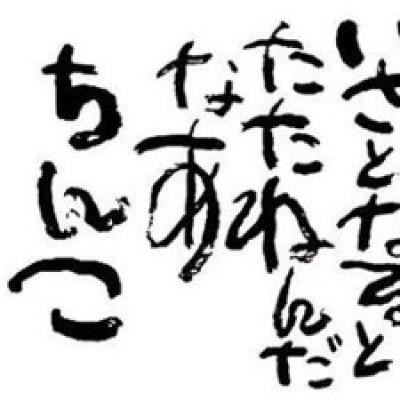 いざとなると
たたねんだ
なあ
ちんこ